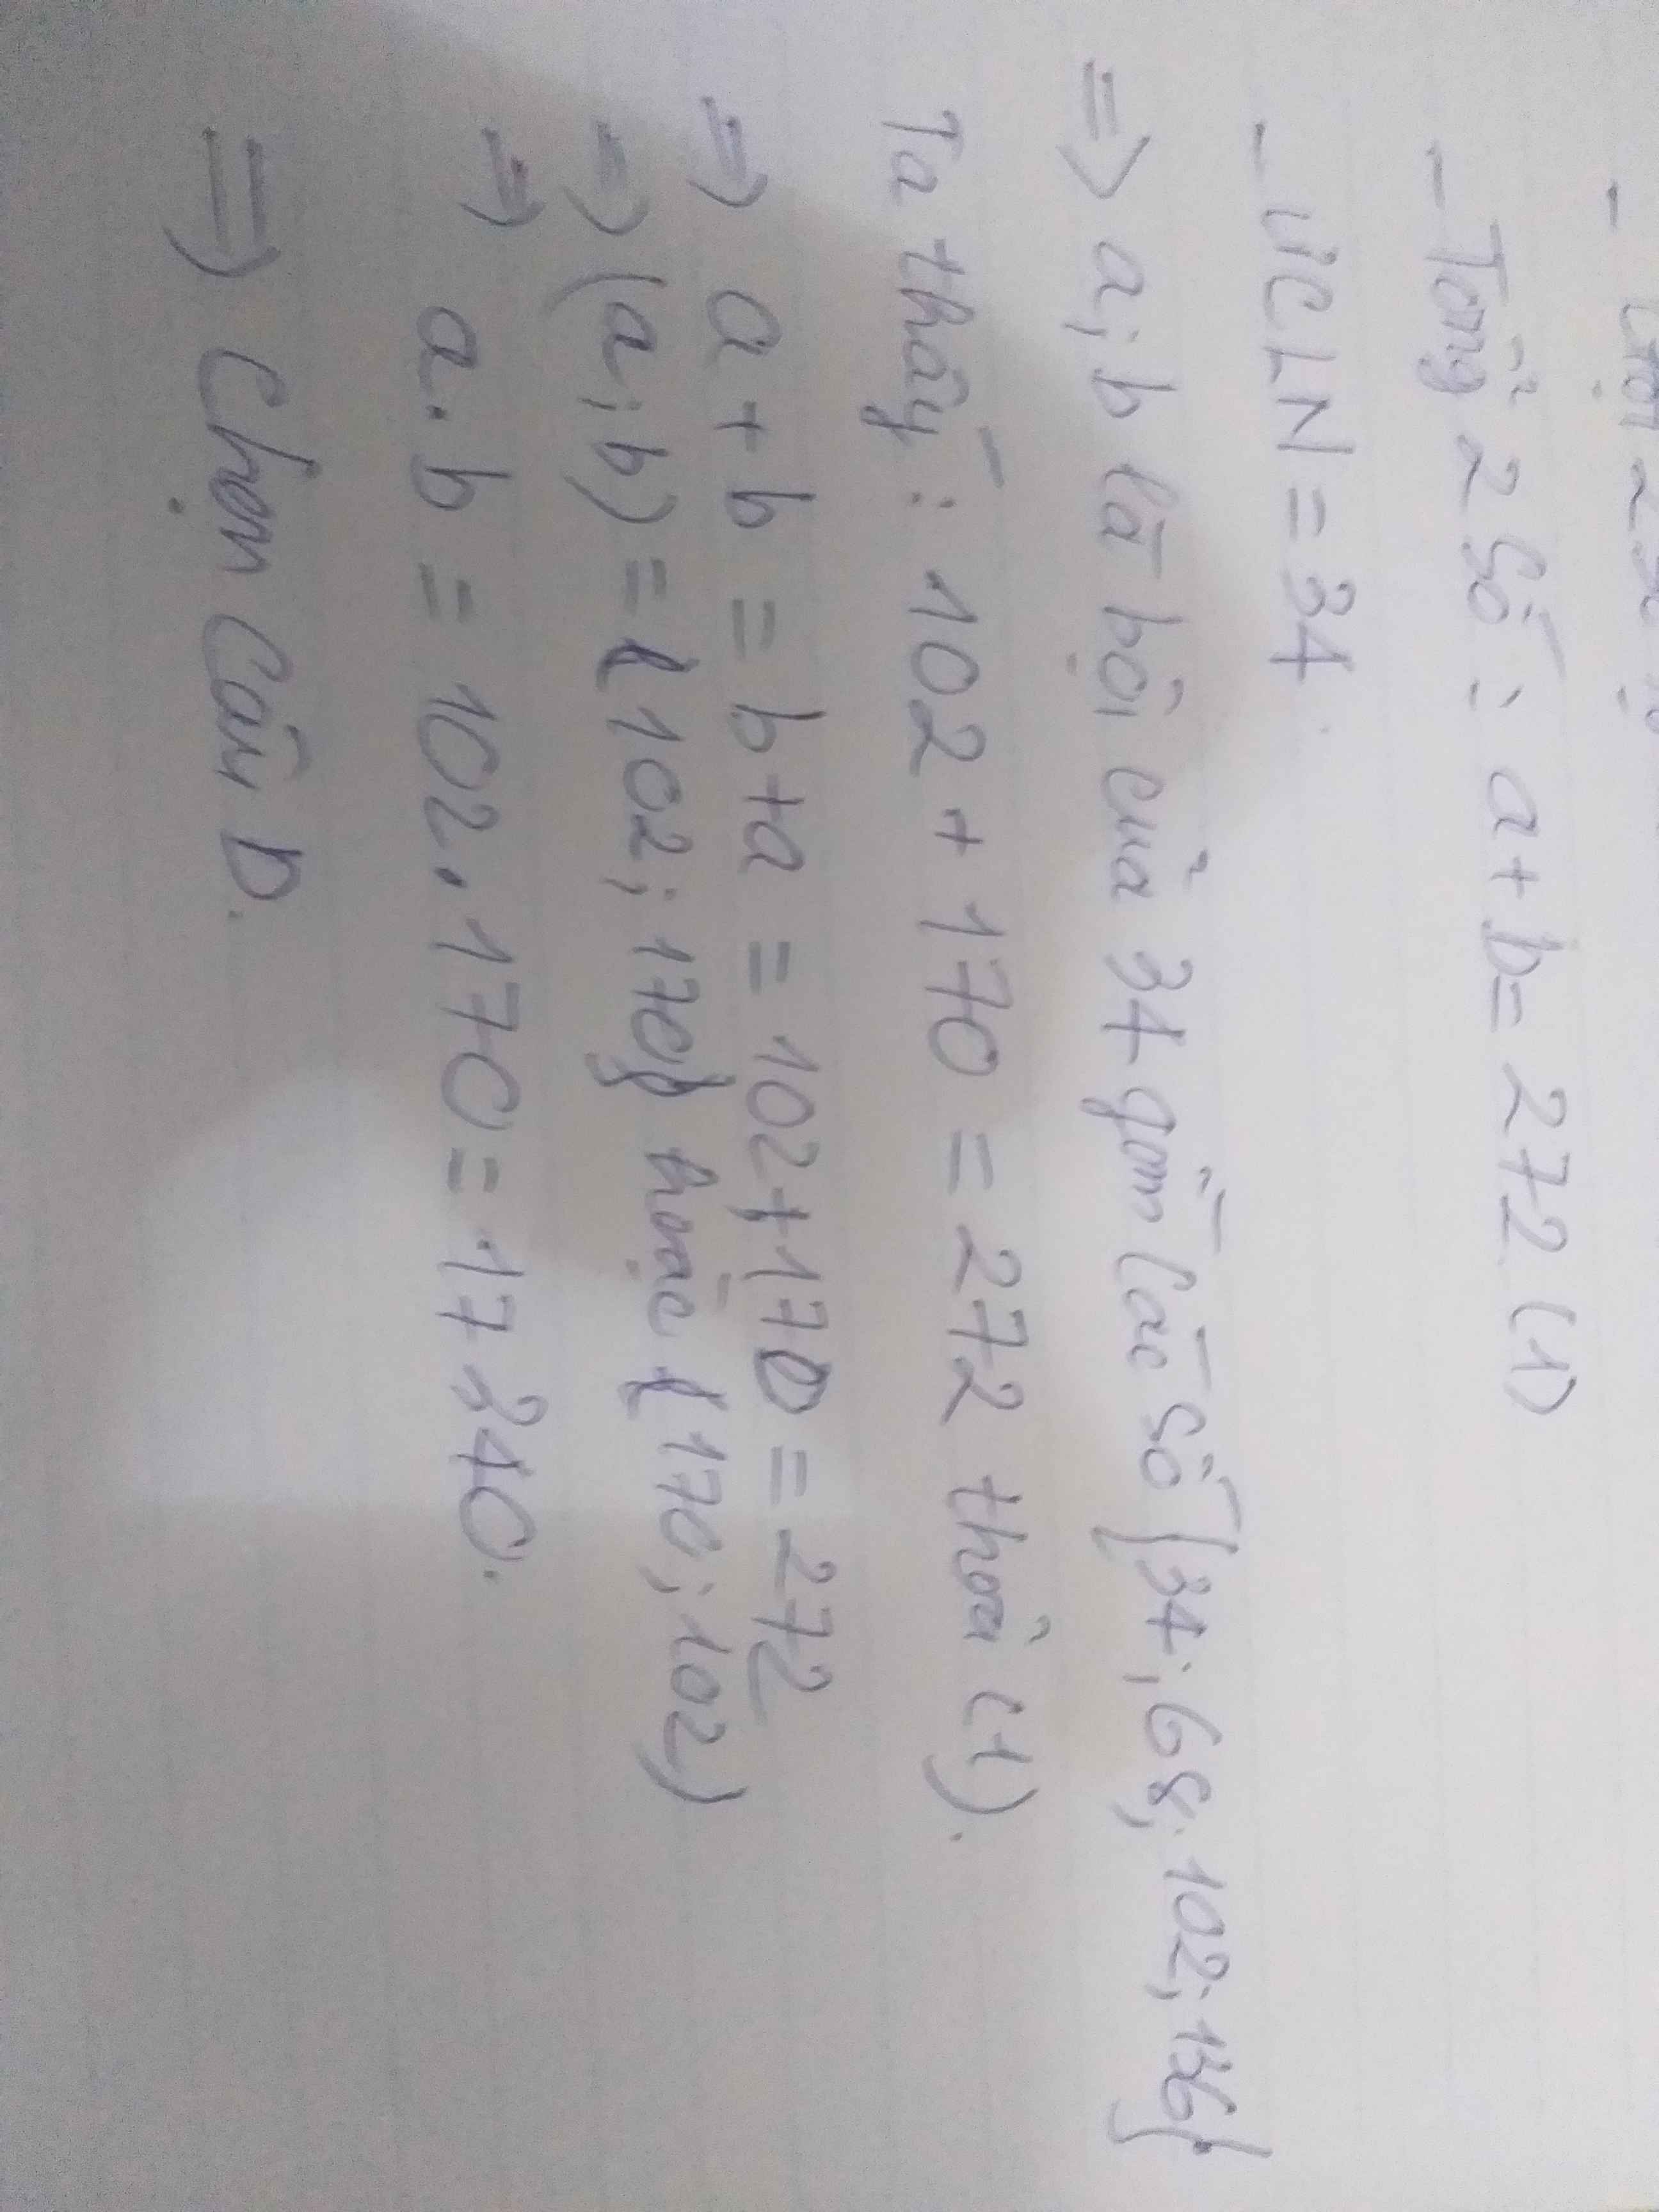 - Gọi 2 số
- Tổng 2 số : a + b = 272 (1)
- ƯCLN = 34.
=> a; b là bội của 34 gồm các số {34; 68; 102; 136}
Ta thấy : 102 + 170 = 272 thoả (1).
=> a + b = b + a = 102 + 170 = 272
=> (a; b) = (102; 170) hoặc (170; 102)
=> a. b = 102. 170 = 17 340.
=> Chọn Câu D.